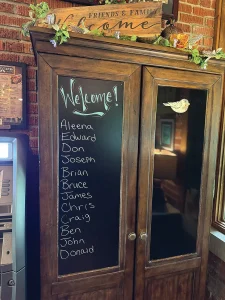 FRIENDS & FAMILY
Welcome
Welcome!
Aleena
Edward
Don
Joseph
Brian
Bruce
James
Chris
Craig
Ben
John
Donald